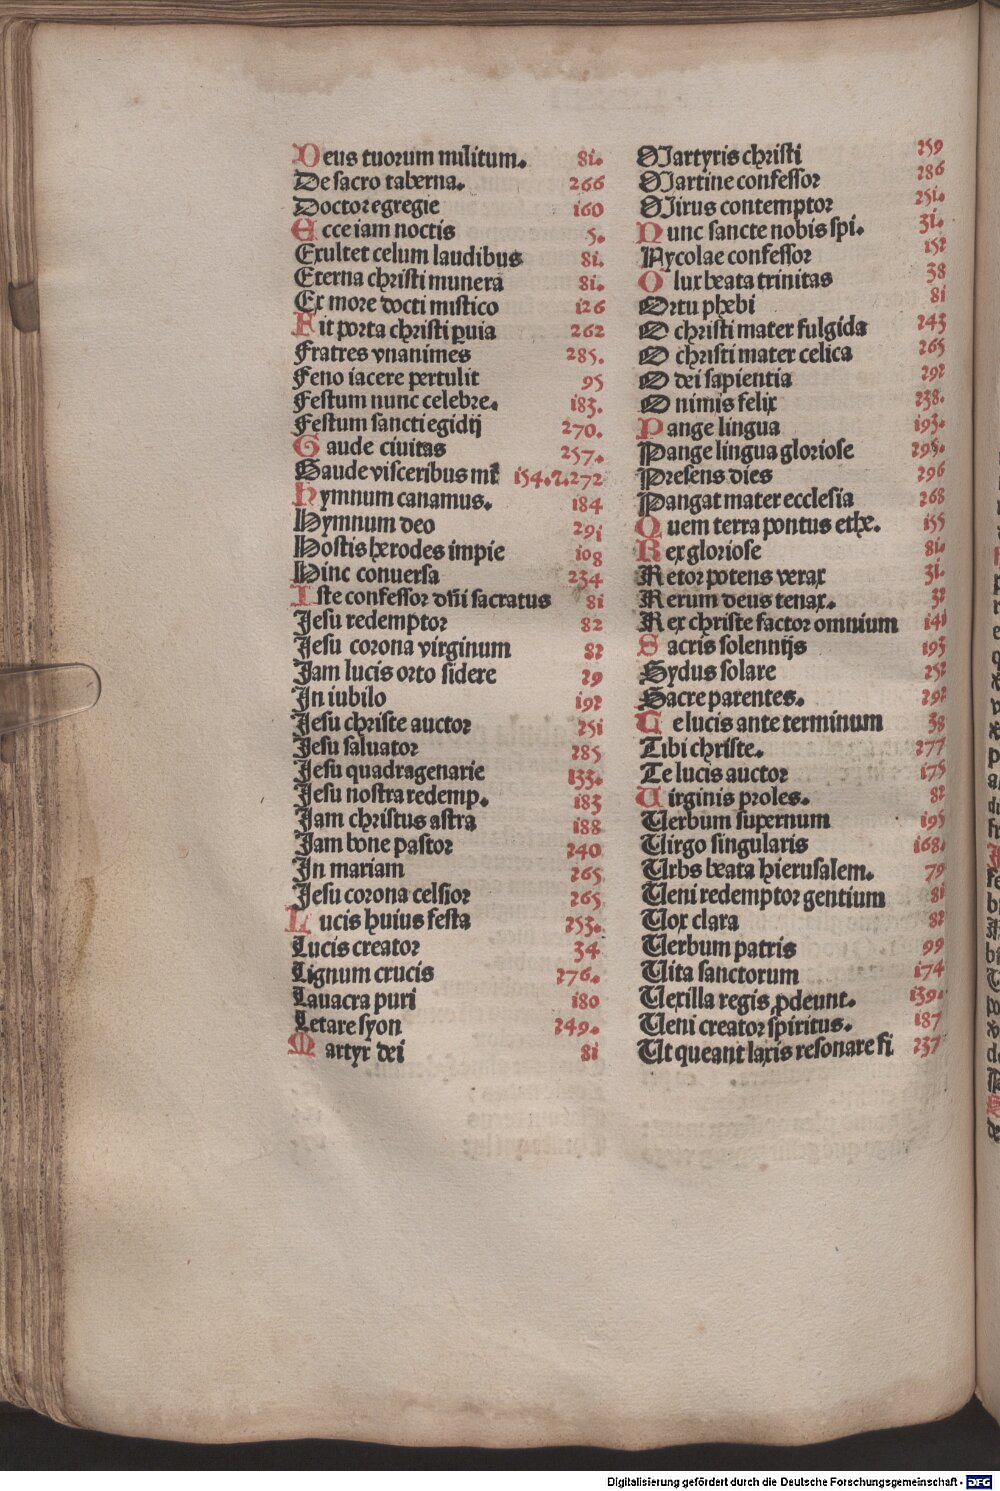 Deus tuorum militum. 8i.
De sacro taberna. 266
Doctor egregie i60
Ecce iam noctis 5.
Exultet celum laudibus 8i.
Eterna christi munera 8i.
Ex more docti mistico i26
Fit porta christi ꝑuia 262
Fratres vnanimes 285.
Feno iacere pertulit 95
Festum nunc celebre. i83.
Festum sancti egidij 270.
Gaude ciuitas 257.
Gaude visceribus mr̄ i54.⁊.272
Hymnum canamus. i84
Hymnum deo 29i
Hostis herodes impie i08
Hinc conuersa 234
Iste confessor dñi sacratus 8i
Jesu redemptor 82
Jesu corona virginum 82
Jam lucis orto sidere 29
In iubilo i92
Jesu christe auctor 25i
Jesu saluator 285
Jesu quadragenarie i33.
Jesu nostra redemp. i83
Jam christus astra i88
Jam bone pastor 240
In mariam 265
Jesu corona celsior 265
Lucis huius festa 253.
Lucis creator 34
Lignum crucis 276.
Lauacra puri i80
Letare syon 249.
Martyr dei 8i
Martyris christi 259
Martine confessor 286
Mirus contemptor 25i.
Nunc sancte nobis spi. 3i.
Nycolae confessor i52
O lux beata trinitas 38
Ortu phebi 8i
O christi mater fulgida 243
O christi mater celica 265
O dei sapientia 292
O nimis felix 238.
Pange lingua i93.
Pange lingua gloriose 295.
Presens dies 296
Pangat mater ecclesia 268
Quem terra pontus ethe. i55
Rex gloriose 8i.
Retor potens verax 3i.
Rerum deus tenax. 32
Rex christe factor omnium i4i
Sacris solennijs i93
Sydus solare 252
Sacre parentes. 292
Te lucis ante terminum 38
Tibi christe. 277
Te lucis auctor i75
Uirginis proles. 82
Uerbum supernum i95
Uirgo singularis i68.
Urbs beata hierusalem. 79
Ueni redemptor gentium 8i
Uox clara 82
Uerbum patris 99
Uita sanctorum i74
Uexilla regis ꝓdeunt. i39.
Ueni creator spiritus. i87
Ut queant laxis resonare fi 237
Digitalisierung gefördert durch die Deutsche Forschungsgemeinschaft - DFG